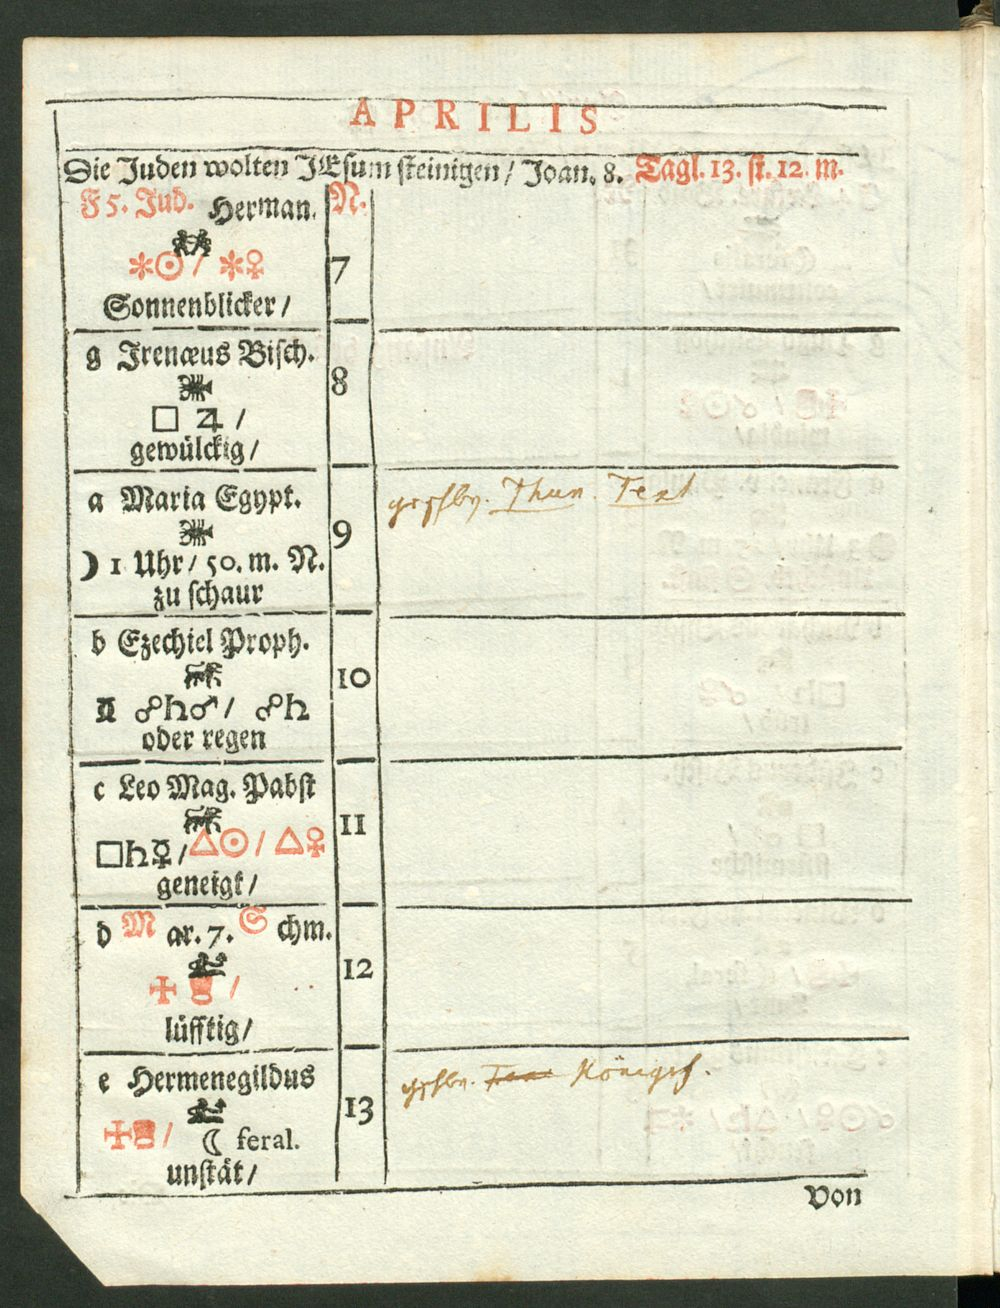 APRILIS
Die Juden wolten JEsum steinigen / Joan. 8. Tagl. 13. st. 12. m.
F 5. Jud. Herman. N.
✻☉ / ✻♀ 7
Sonnenblicker /
g Irenæus Bisch.
8
□ ♃ /
gewülckig /
a Maria Egypt.
Thun. Text
9
☽ 1 Uhr / 50. m. N.
zu schaur
b Ezechiel Proph.
10
♊ ☍♄♂ / ☍♄
oder regen
c Leo Mag. Pabst
11
□♄☿ / △☉ / △♀
geneigt /
d Mar. 7. Schm.
12
✠ /
lüfftig /
e Hermenegildus
13
✠ / ☾ feral.
unstät /
Von